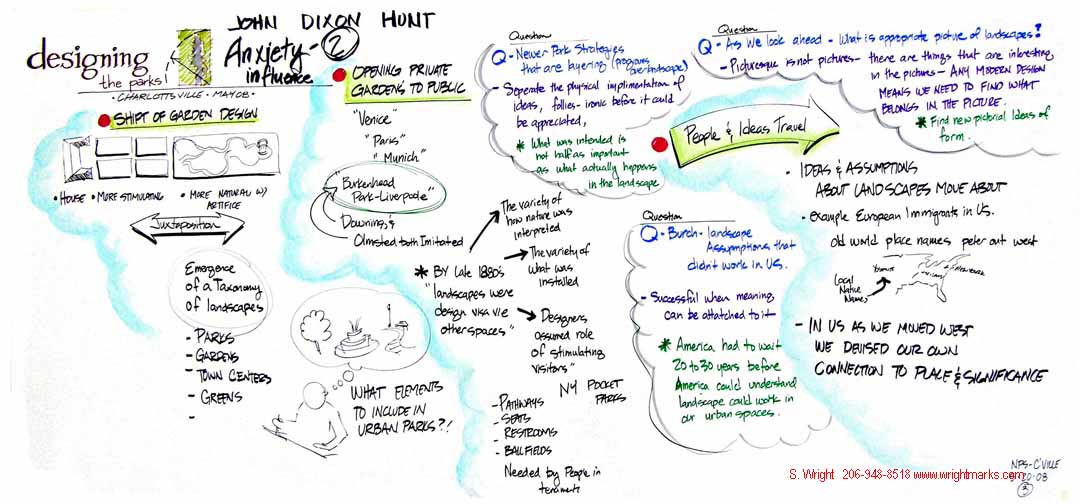 JOHN DIXON HUNT
Anxiety - 2
influence
designing
the parks!
• CHARLOTTSVILLE •
SHIFT OF GARDEN DESIGN
• HOUSE
• MORE STIMULATING
• MORE NATURAL W/
ARTIFICE
Juxtaposition
Emergence
of a Taxonomy
of landscapes
- PARKS
- GARDENS
- TOWN CENTERS
- GREENS
-
OPENING PRIVATE
GARDENS TO PUBLIC
"Venice"
"Paris"
"Munich"
"Burkenhead
Park-Liverpoole"
Downing, &
Olmsted both Imitated
* By Late 1880s
"landscapes were
design visa vie
other spaces"
The variety of
how nature was
interpreted
The variety of
what was
installed
Designers
assumed role
of stimulating
visitors"
WHAT ELEMENTS
TO INCLUDE IN
URBAN PARKS?!
NY POCKET
PARKS
- PATHWAYS
- SEATS
- RESTROOMS
- BALLFIELDS
Needed by People in
tenaments
Question
Q - Newer Park Strategies
that are layering (programs
over landscape)
- Seperate the physical implimentation of
ideas, follies - ironic before it could
be appreciated,
* What was intended is
not half as important
as what actually happens
in the landscape
Question
Q - As we look ahead - What is appropriate picture of landscapes?
- Picturesque is not pictures - there are things that are interesting
in the pictures - ANY MODERN DESIGN
MEANS WE NEED TO FIND WHAT
BELONGS IN THE PICTURE.
* Find new pictorial Ideas of
form.
People & Ideas Travel
• IDEAS & ASSUMPTIONS
ABOUT LANDSCAPES MOVE ABOUT
• example European Immigrants in US.
old world place names peter out west
Local
Native
Names
Question
Q - Burch - landscape
Assumptions that
didn't work in US.
- Successful when meaning
can be attatched to it
* America had to wait
20 to 30 years before
America could understand
landscape could work in
our urban spaces.
- IN US AS WE MOVED WEST
WE DEVISED OUR OWN
CONNECTION TO PLACE & SIGNIFICANCE
NPS - C'VILLE
2
S. Wright 206-948-8518 www.wrightmarks.com